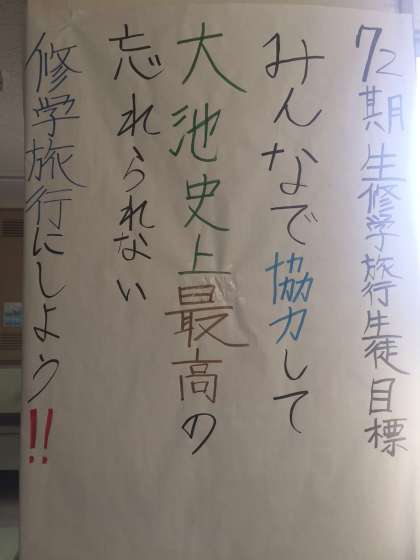 72期生修学旅行生徒目標
みんなで協力して
大池史上最高の
忘れられない
修学旅行にしよう!!